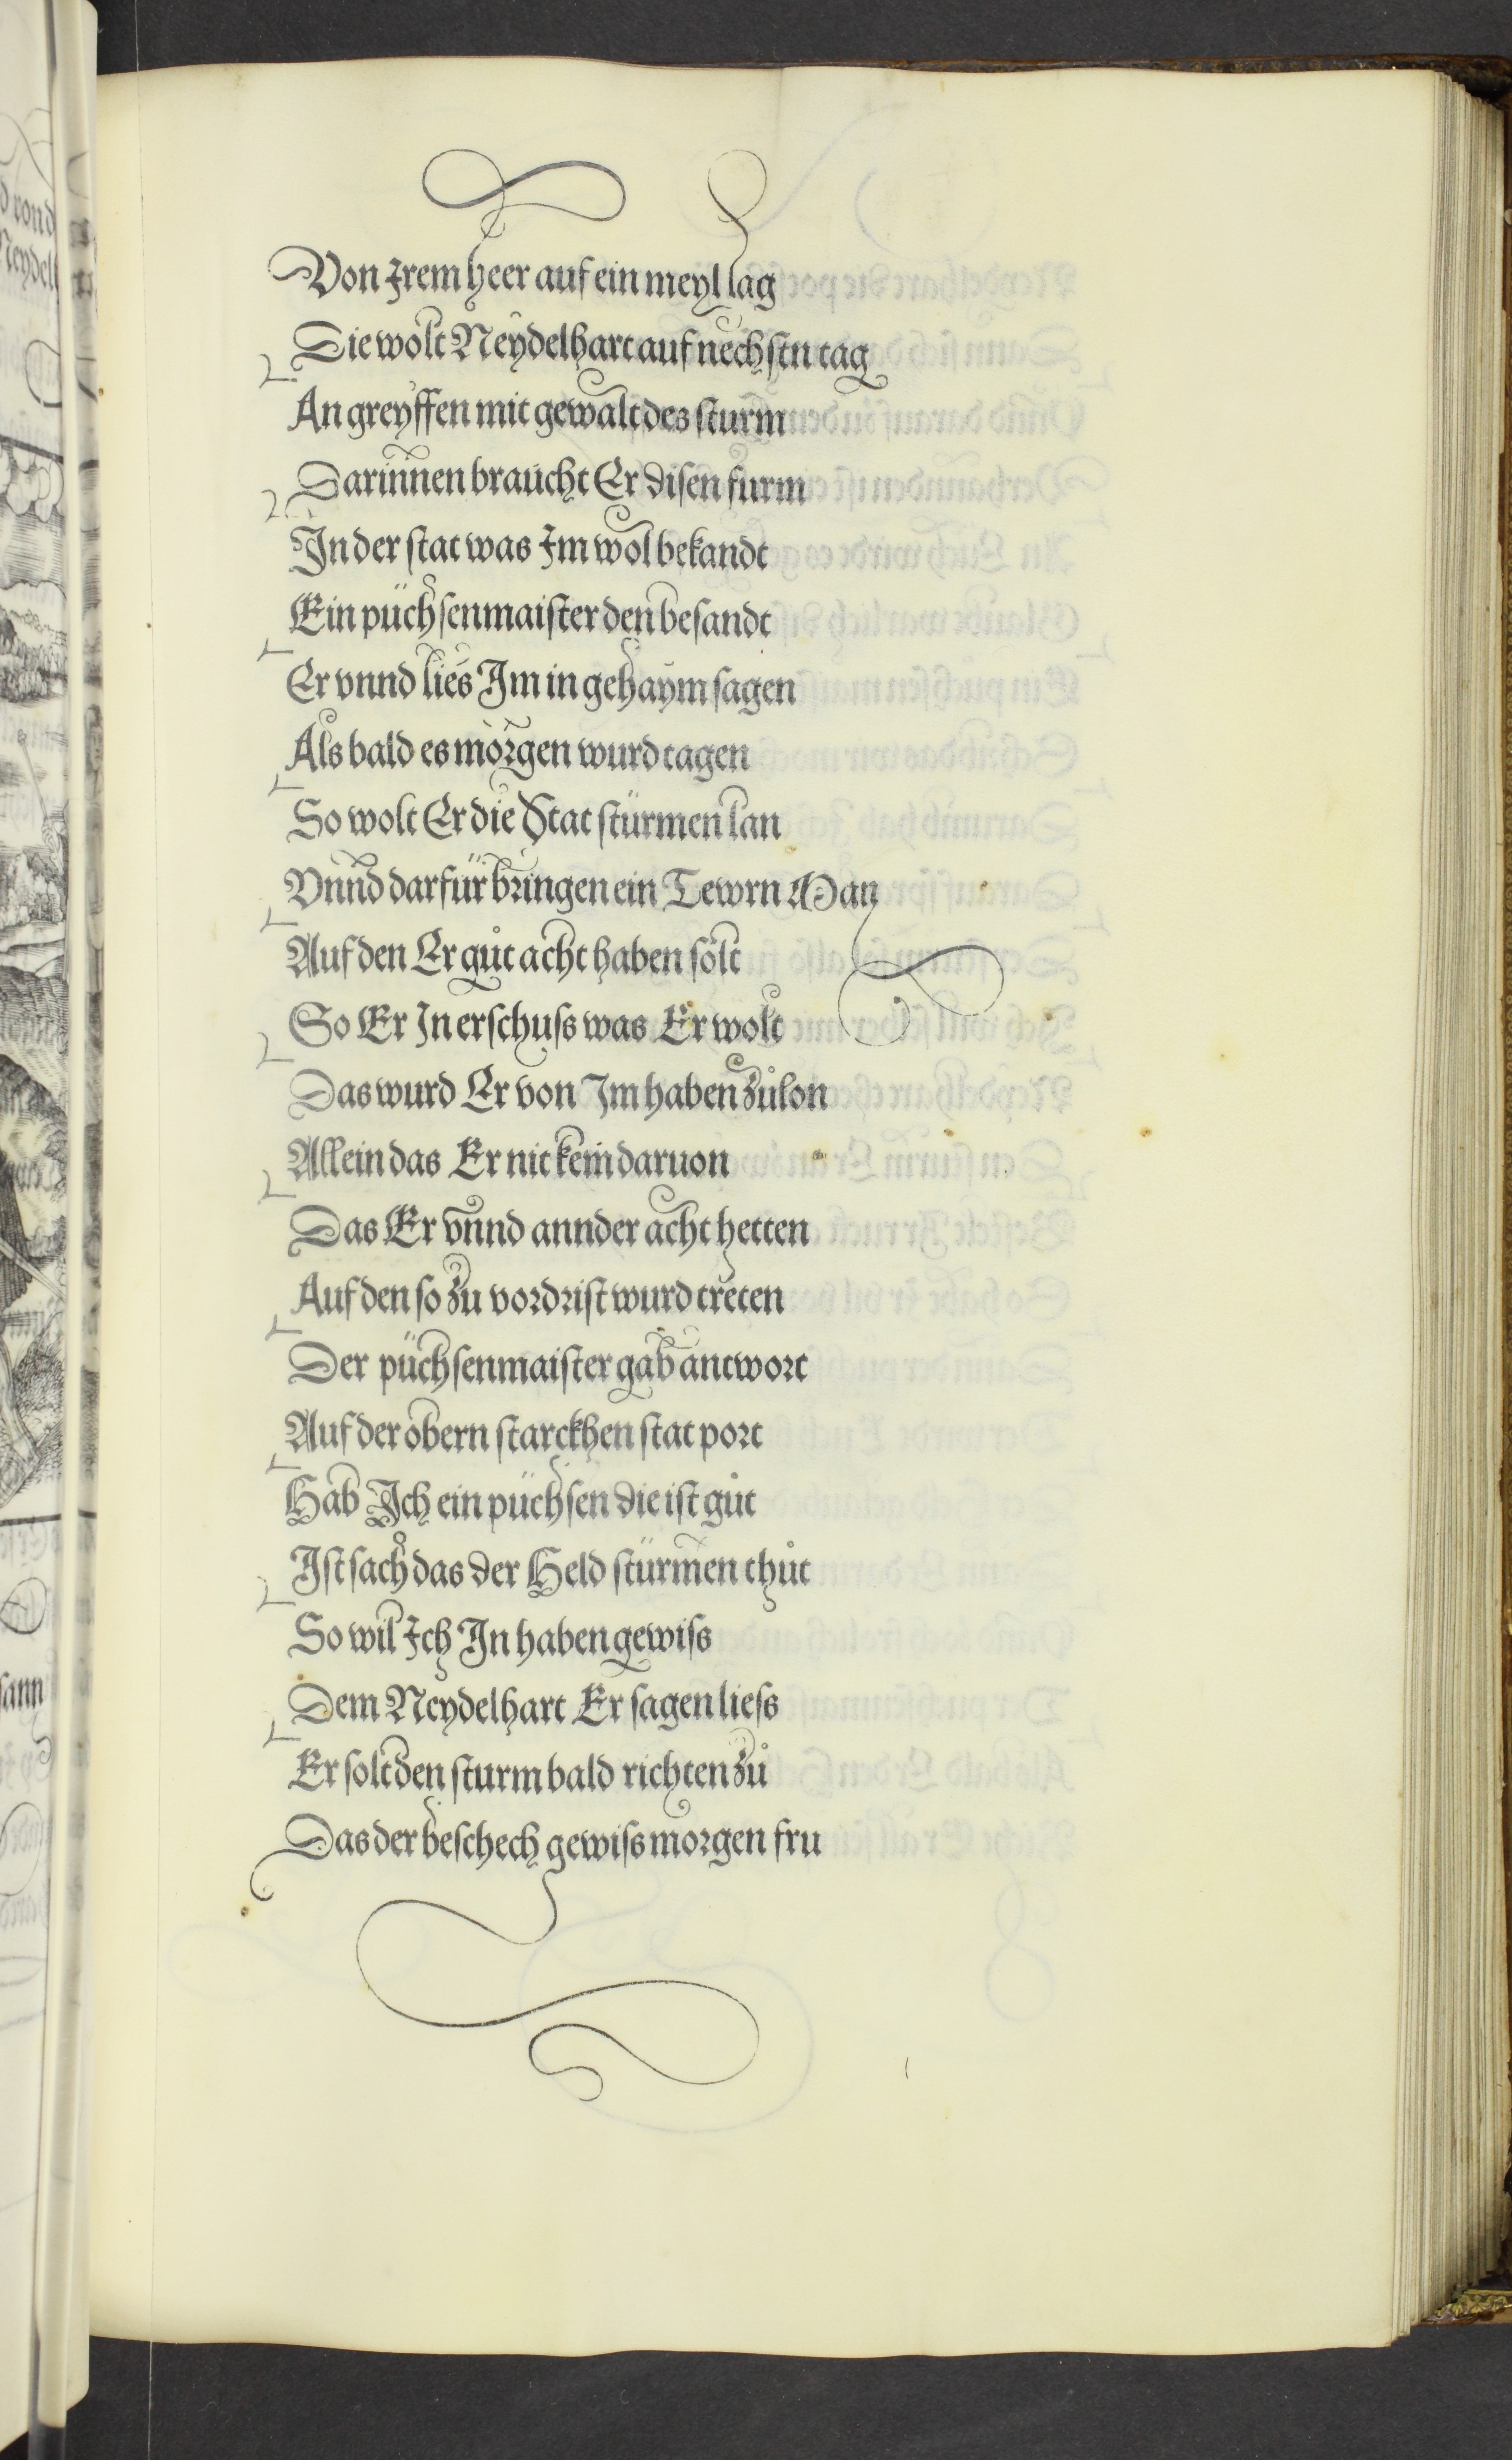 Von Irem heer auf ein meyl lag
Die wolt Neydelhart auf nechstn tag
An greyffen mit gewalt des sturm
Darinnen braucht Er disen furm
In der stat was Im wol bekandt
Ein püchsenmaister den besandt
Er vnnd lies Im in gehaym sagen
Als bald es morgen wurd tagen
So wolt Er die Stat stürmen lan
Vnnd darfür bringen ein Tewrn Man
Auf den Er gůt acht haben solt
So Er In erschuss was Er wolt
Das wurd Er von Im haben zůlon
Allein das Er nit kem daruon
Das Er vnnd annder acht hetten
Auf den so zu vordrist wurd treten
Der püchsenmaister gab antwort
Auf der obern starckhen stat port
Hab Ich ein püchsen die ist gůt
Ist sach das der Held stürmen thůt
So wil Ich In haben gewiss
Dem Neydelhart Er sagen liess
Er solt den sturm bald richten zů
Das der beschech gewiss morgen fru